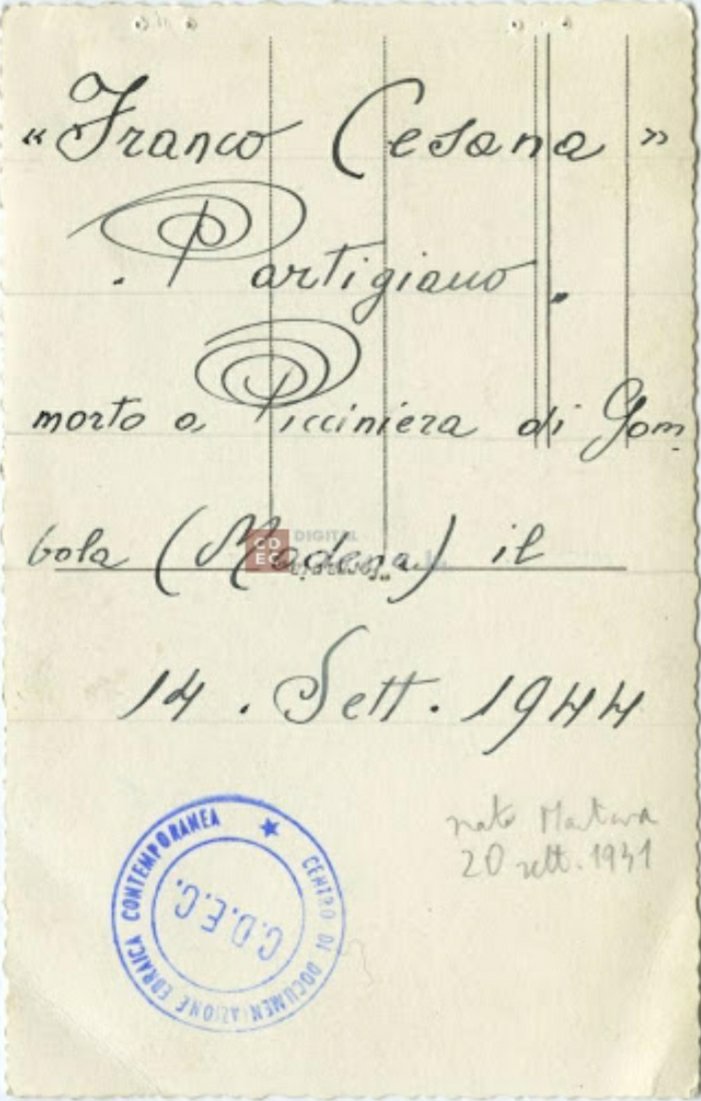 « Franco Cesana »
. Partigiano .
morto a Picciniera di Gom
bola (Modena) il
CD
EC
DIGITAL
14 . Sett. 1944
nato Mantova
20 sett. 1931
CENTRO DI DOCUMENTAZIONE EBRAICA CONTEMPORANEA ★
C.D.E.C.